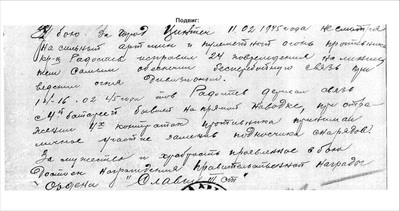 Подвиг:
В бою за город Цинтен 11.02.1945 года не смотря
на сильный артмин и пулеметный огонь противника
кр-ц Радостев исправил 24 повреждения на линии
тем самым обеспечил бесперебойную связь при
ведении огня дивизионом.
14-16.02.45 года тов Радостев держал связь
с 4й батареей бывшей на прямой наводке, при отра
жении контратак противника принимал
личное участие заменяя подносчика снарядов.
За мужество и храбрость проявленное в боях
Достоин награждения правительственной наградой
Ордена "Славы III ст"